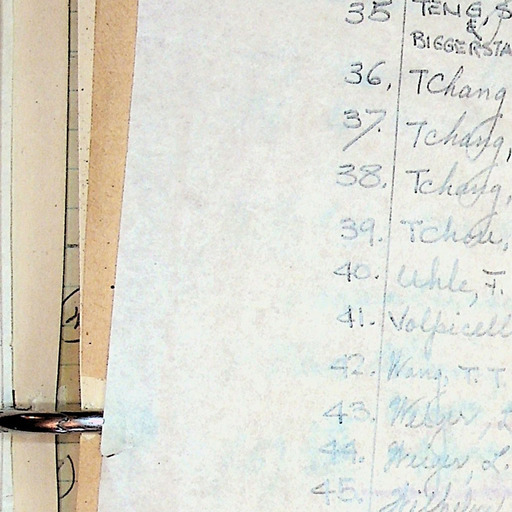 35 TENG, S
&
BIGGERSTA
36. Tchang
37. Tchang,
38. Tchang,
39. Tchou,
40. Uhle, F.
41. Volpicell
42. Wang, T. T.
43. Wieger, L
44. Wieger, L.
45. Wilhelm